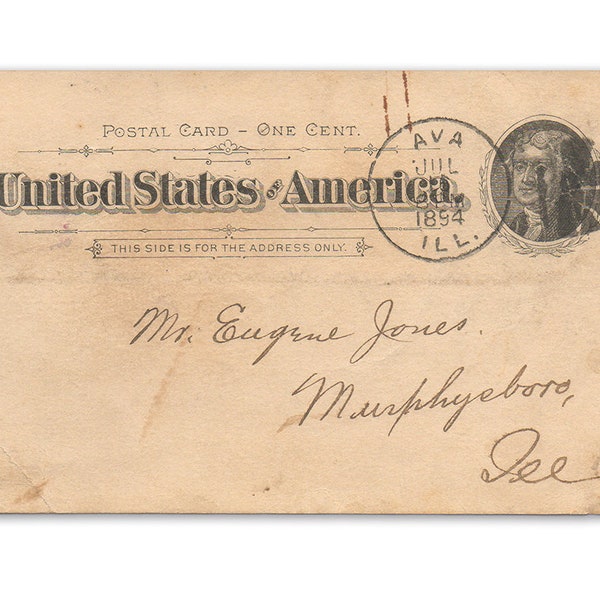 POSTAL CARD – ONE CENT.
United States of America.
THIS SIDE IS FOR THE ADDRESS ONLY.
AVA
JUL
1894
ILL.
Mr. Eugene Jones.
Murphysboro,
Ill